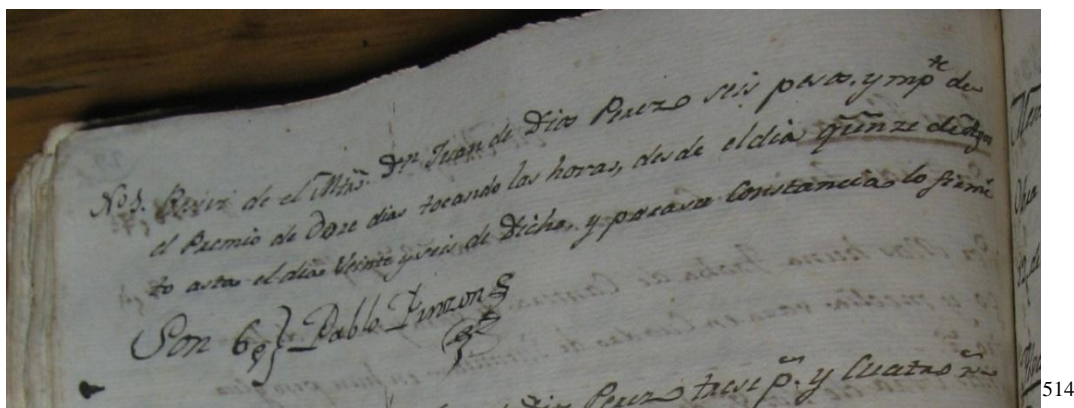 No 3. Reciví de el Mtrô. Dn. Juan de Dios Perez seis pesos, y mpte de
el Premio de Doze dias tocando las horas, desde el dia quinze de Agos
to asta el dia Veinte y seis de Dicho, y para Constancia lo firmé
Son 6 p} Pablo Pinzon
Dios Perez trese ps. y Cuatro rs
514